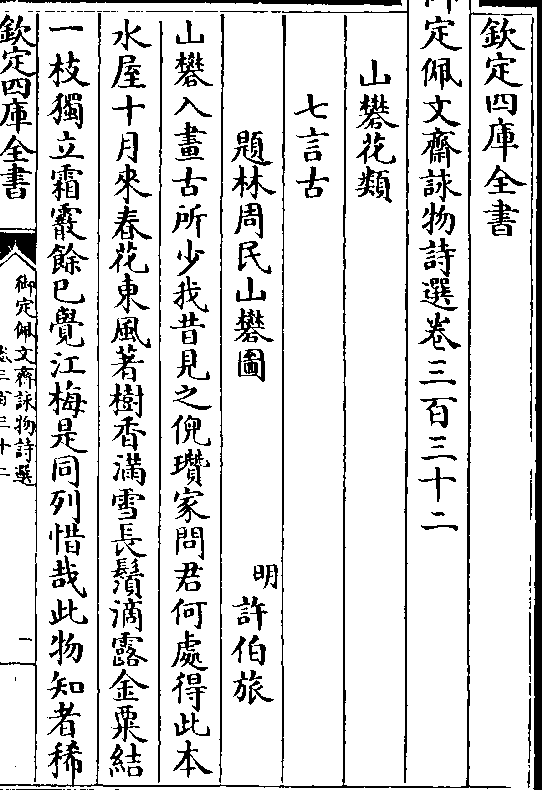 欽定四庫全書
御定佩文齋詠物詩選卷三百三十二
山礬花類
七言古
題林周民山礬圖 明 許伯旅
山礬入畫古所少我昔見之倪瓚家問君何處得此本
水屋十月來春花東風著樹香滿雪長鬚滴露金粟結
一枝獨立霜霰餘已覺江梅是同列惜哉此物知者稀
欽定四庫全書
御定佩文齋詠物詩選
卷三百三十二
一